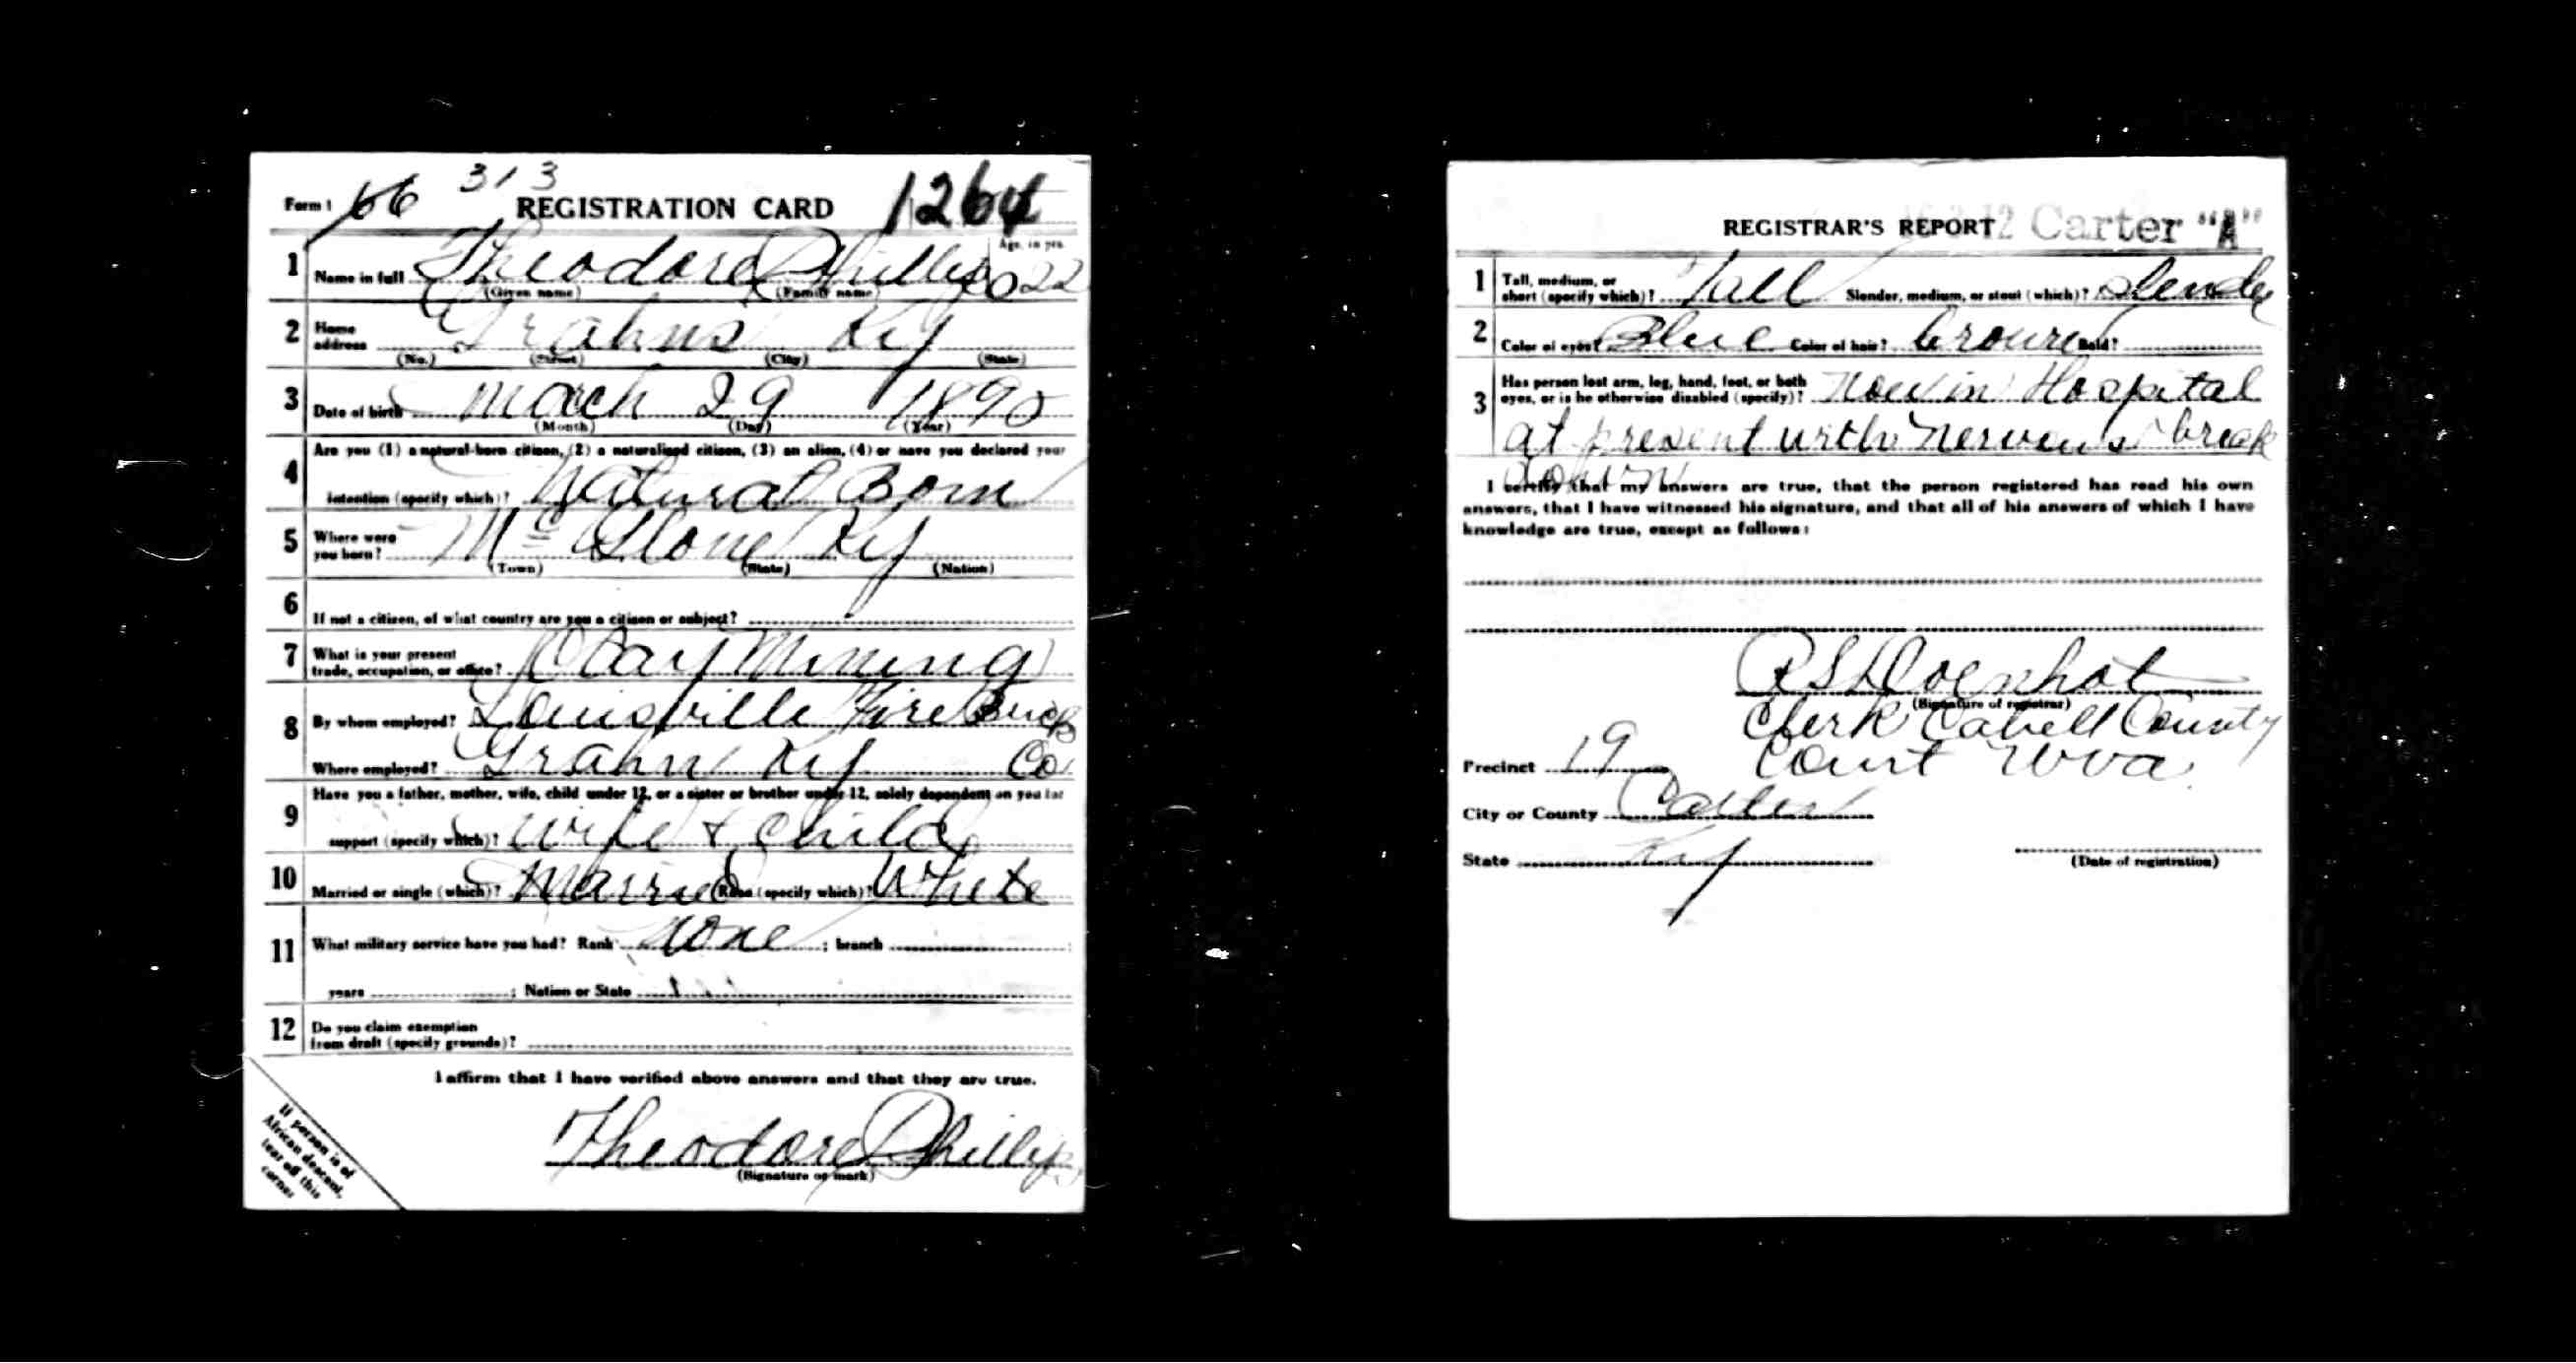 313
Form 1 66 REGISTRATION CARD 1264
Age, in yrs.
1 Name in full Theodore Phillips 22
(Given name) (Family name)
2 Home address Grahns Ky
(No.) (Street) (City) (State)
3 Date of birth March 29 1890
(Month) (Day) (Year)
4 Are you (1) a natural-born citizen, (2) a naturalized citizen, (3) an alien, (4) or have you declared your
intention (specify which)? Natural Born
5 Where were you born? Mc Glone Ky
(Town) (State) (Nation)
6 If not a citizen, of what country are you a citizen or subject?
7 What is your present
trade, occupation, or office? Clay Mining
8 By whom employed? Louisville Fire Brick
Where employed? Grahn Ky Co
9 Have you a father, mother, wife, child under 12, or a sister or brother under 12, solely dependent on you for
support (specify which)? Wife + child
10 Married or single (which)? Married Race (specify which)? White
11 What military service have you had? Rank None ; branch ;
years ; Nation or State
12 Do you claim exemption
from draft (specify grounds)?
I affirm that I have verified above answers and that they are true.
Theodore Phillips
(Signature or mark)
If person is of
African descent,
tear off this
corner
REGISTRAR'S REPORT Carter "A"
1 Tall, medium, or
short (specify which)? Tall Slender, medium, or stout (which)? Slender
2 Color of eyes? Blue Color of hair? brown Bald?
3 Has person lost arm, leg, hand, foot, or both
eyes, or is he otherwise disabled (specify)? Now in Hospital
at present with nervous break
down
I certify that my answers are true, that the person registered has read his own
answers, that I have witnessed his signature, and that all of his answers of which I have
knowledge are true, except as follows:
(Signature of registrar)
Clerk Cabell County
Precinct 19 Court Wva
City or County Carter
State Ky
(Date of registration)